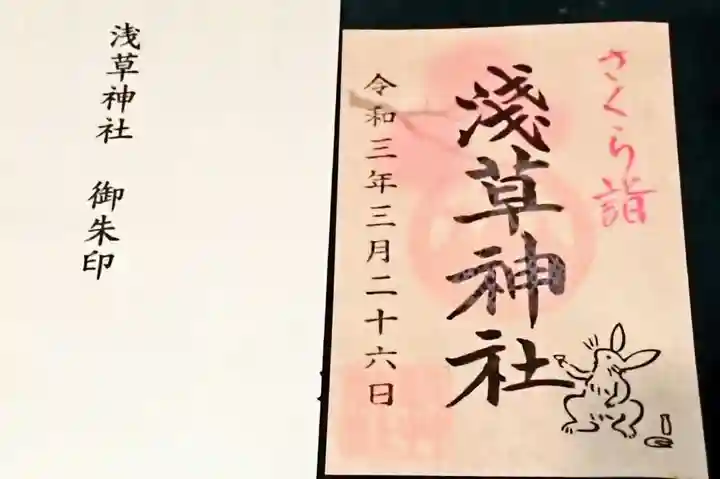 さくら詣
淺草神社
令和三年三月二十六日
浅草神社 御朱印